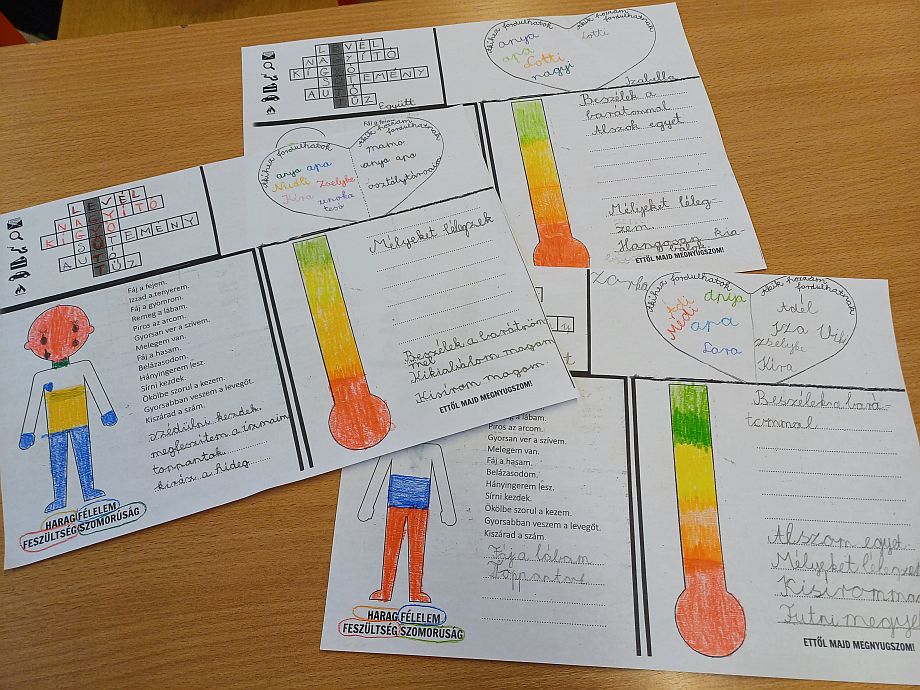 LEVÉL
NAGYÍTÓ
KÍGYÓ
SÜTEMÉNY
AUTÓ
TŰZ
Együtt
Akihez fordulhatok
anya
apa
Lotti
nagyi
Akik hozzám fordulhatnak
Lotti
Izabella
Beszélek a
barátommal
Alszok egyet
Mélyeket léleg-
zem
Hangosan kia-
ETTŐL MAJD MEGNYUGSZOM!
LEVÉL
NAGYÍTÓ
KÍGYÓ
SÜTEMÉNY
AUTÓ
TŰZ
Akihez fordulhatok
anya apa
Zselyke
Kira unoka
tesó
Fáj a fejem
Akik hozzám fordulhatnak
mama
anya apa
osztálytársaim
Fáj a fejem.
Izzad a tenyerem.
Fáj a gyomrom.
Remeg a lábam.
Piros az arcom.
Gyorsan ver a szívem.
Melegem van.
Fáj a hasam.
Belázasodom.
Hányingerem lesz.
Sírni kezdek.
Ökölbe szorul a kezem.
Gyorsabban veszem a levegőt.
Kiszárad a szám.
szédülni kezdek
megfeszítem a izmaim
toppantok
kiráz a hideg
HARAG FÉLELEM
FESZÜLTSÉG SZOMORÚSÁG
Mélyeket lélegzek
Beszélek a barátnőm
mel
Kikiabálom magam
Kisírom magam
ETTŐL MAJD MEGNYUGSZOM!
Akihez fordulhatok
Ádi
Médi
apa
Sára
Akik hozzám fordulhatnak
Adél
Iza Viki
Zselyke
Kira
Piros az arcom.
Gyorsan ver a szívem.
Melegem van.
Fáj a hasam.
Belázasodom.
Hányingerem lesz.
Sírni kezdek.
Ökölbe szorul a kezem.
Gyorsabban veszem a levegőt.
Kiszárad a szám.
Fáj a lábam
Toppantok
HARAG FÉLELEM
FESZÜLTSÉG SZOMORÚSÁG
Beszélek a bará-
tommal
Alszom egyet
Mélyeket lélegzek
Kisírom mag
Futni megyek
ETTŐL MAJD MEGNYUGSZOM!